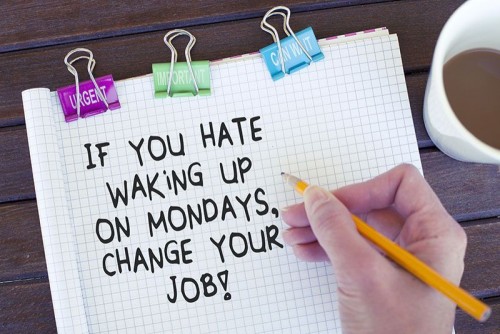 URGENT
IMPORTANT
CAN WAIT
IF YOU HATE
WAKING UP
ON MONDAYS,
CHANGE YOUR
JOB!